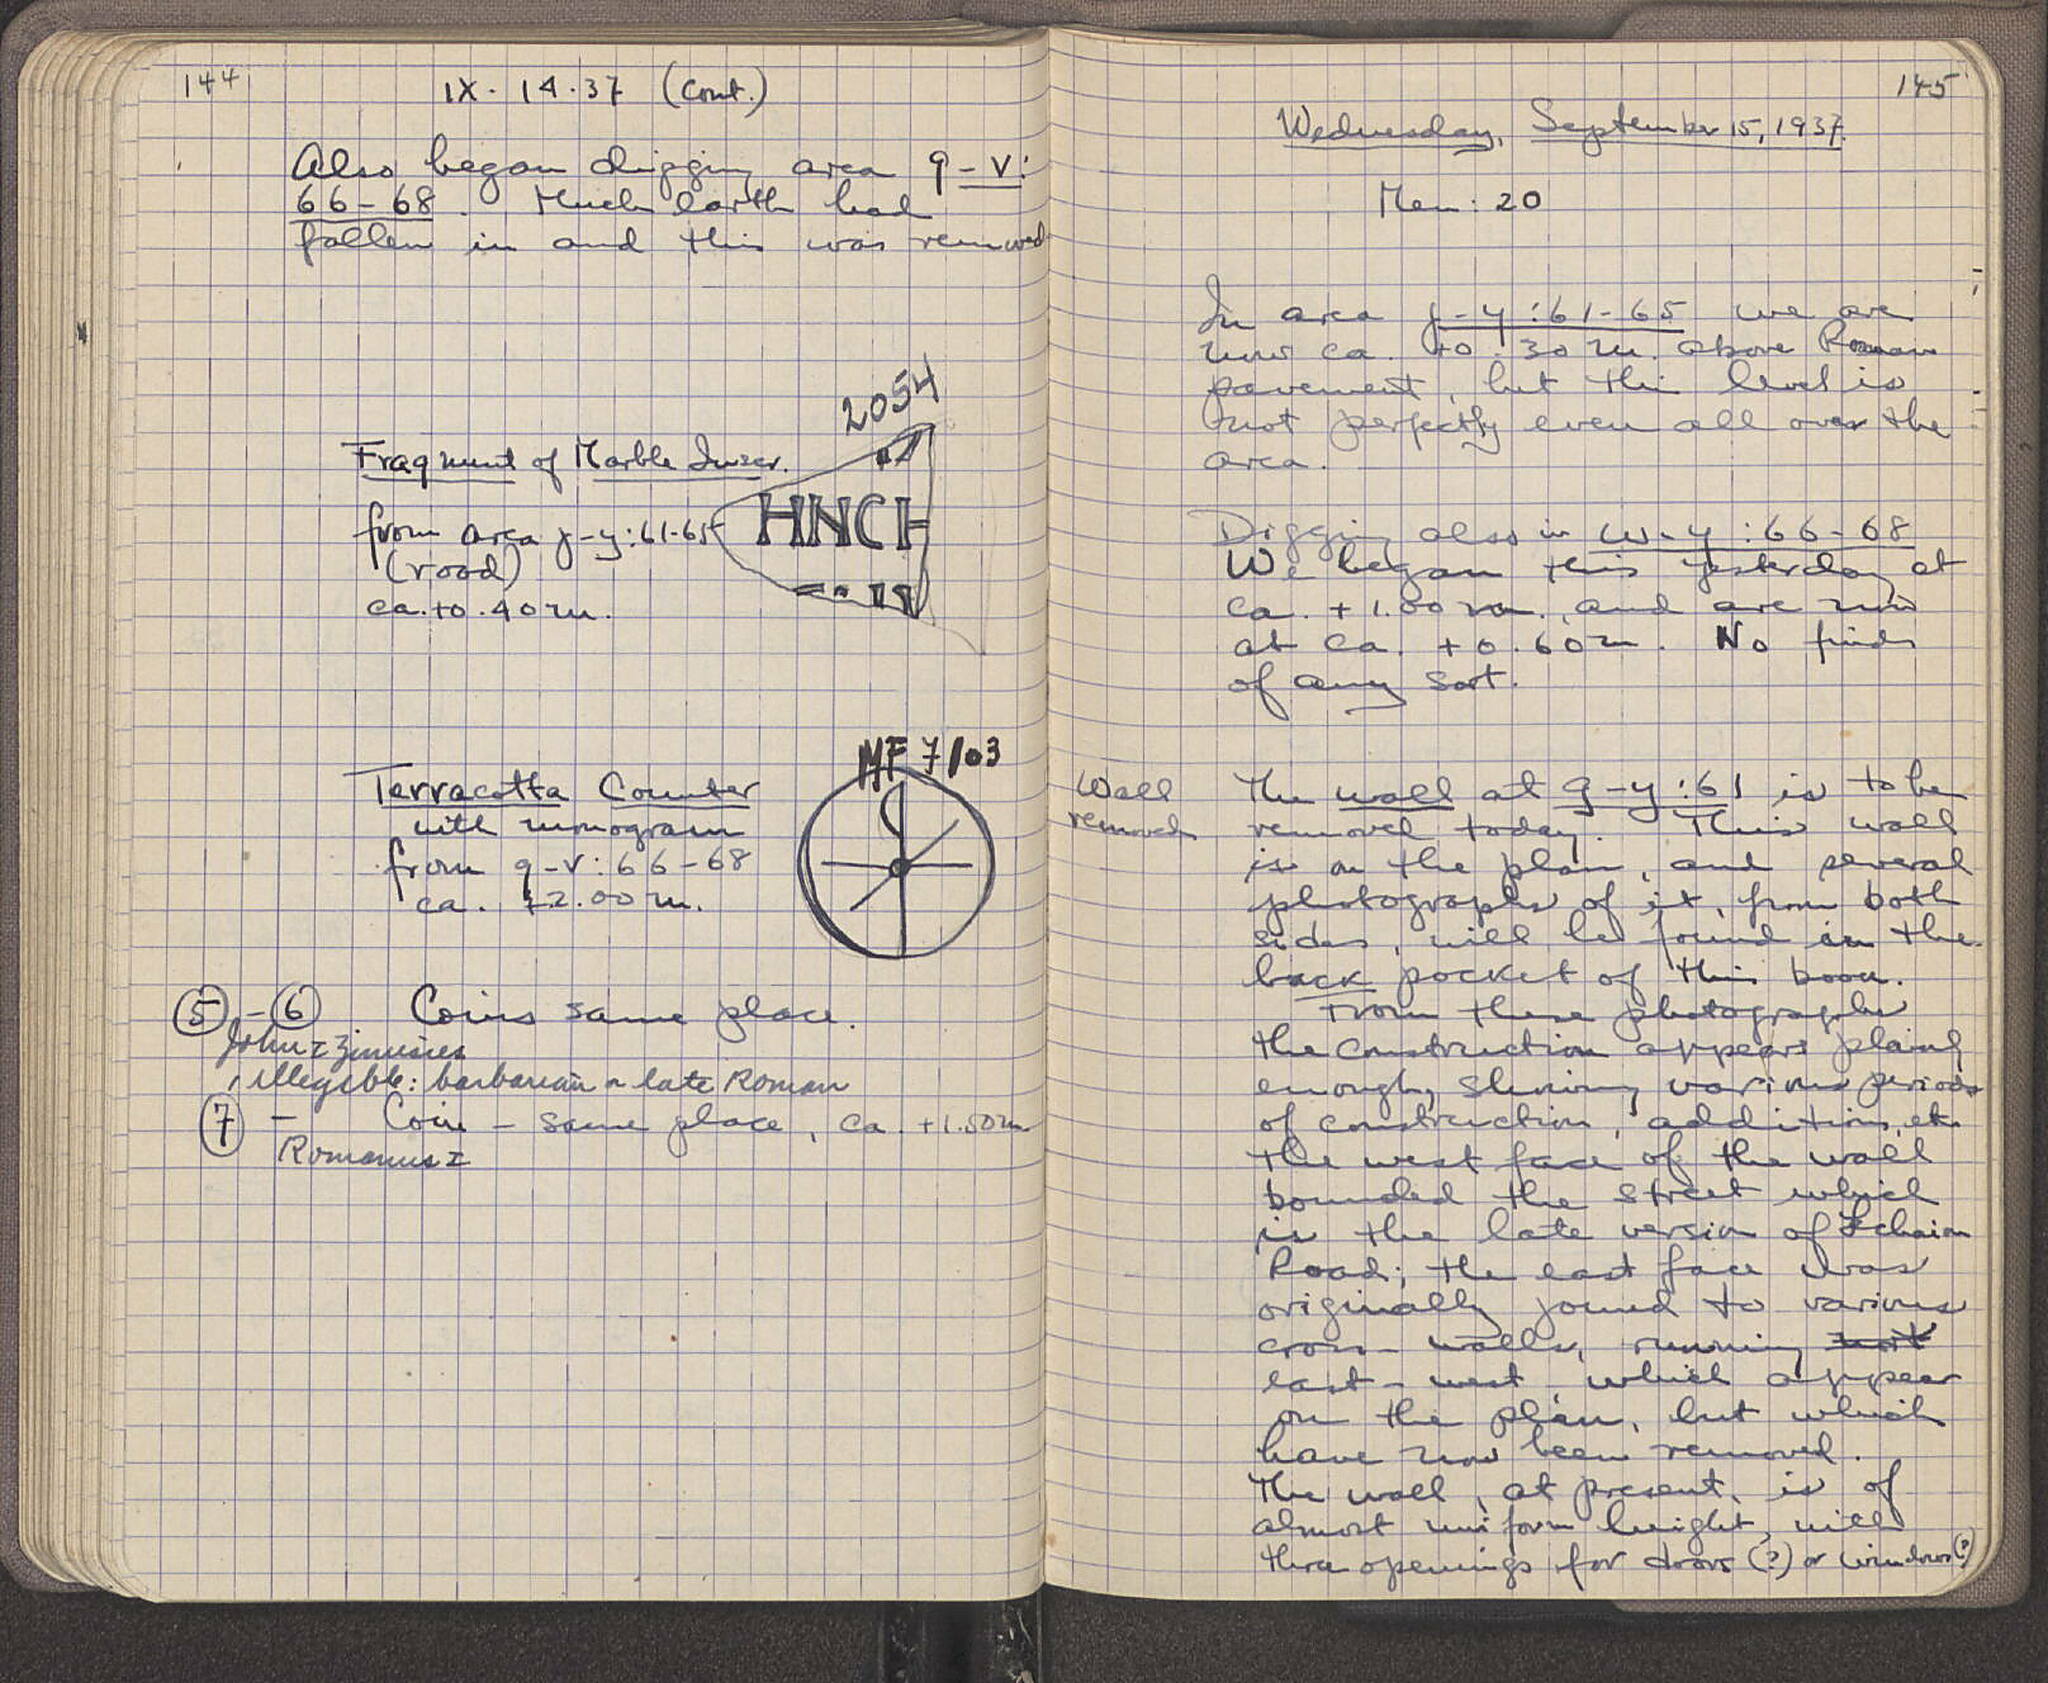 144
IX. 14.37 (Cont.)
Also began digging area q-v:
66-68. Much earth had
fallen in and this was removed
2054
Fragment of Marble Inscr.
from area j-y:61-65
(road)
ca. +0.40 m.
HNCH
MF 7103
Terracotta Counter
with monogram
from q-v:66-68
ca. +2.00 m.
5 - 6 Coins same place.
John I Zimisces
illegible: barbarian or late Roman
7 - Coin - same place, ca. +1.50 m
Romanus I
145
Wednesday, September 15, 1937.
Men: 20
In area j-y:61-65 we are
now ca. +0.30 m. above Roman
pavement, but this level is
not perfectly even all over the
area.
Digging also in w-y:66-68
We began this yesterday at
ca. +1.00 m., and are now
at ca. +0.60 m. No finds
of any sort.
Wall
removed
The wall at g-y:61 is to be
removed today. This wall
is on the plan, and several
photographs of it, from both
sides, will be found in the
back pocket of this book.
From these photographs
the construction appears plainly
enough, showing various periods
of construction, additions, etc.
The west face of the wall
bounded the street which
is the late version of Lechaion
Road; the east face was
originally joined to various
cross-walls, running
east-west, which appear
on the plan, but which
have now been removed.
The wall, at present, is of
almost uniform height, with
three openings for doors (?) or windows (?)